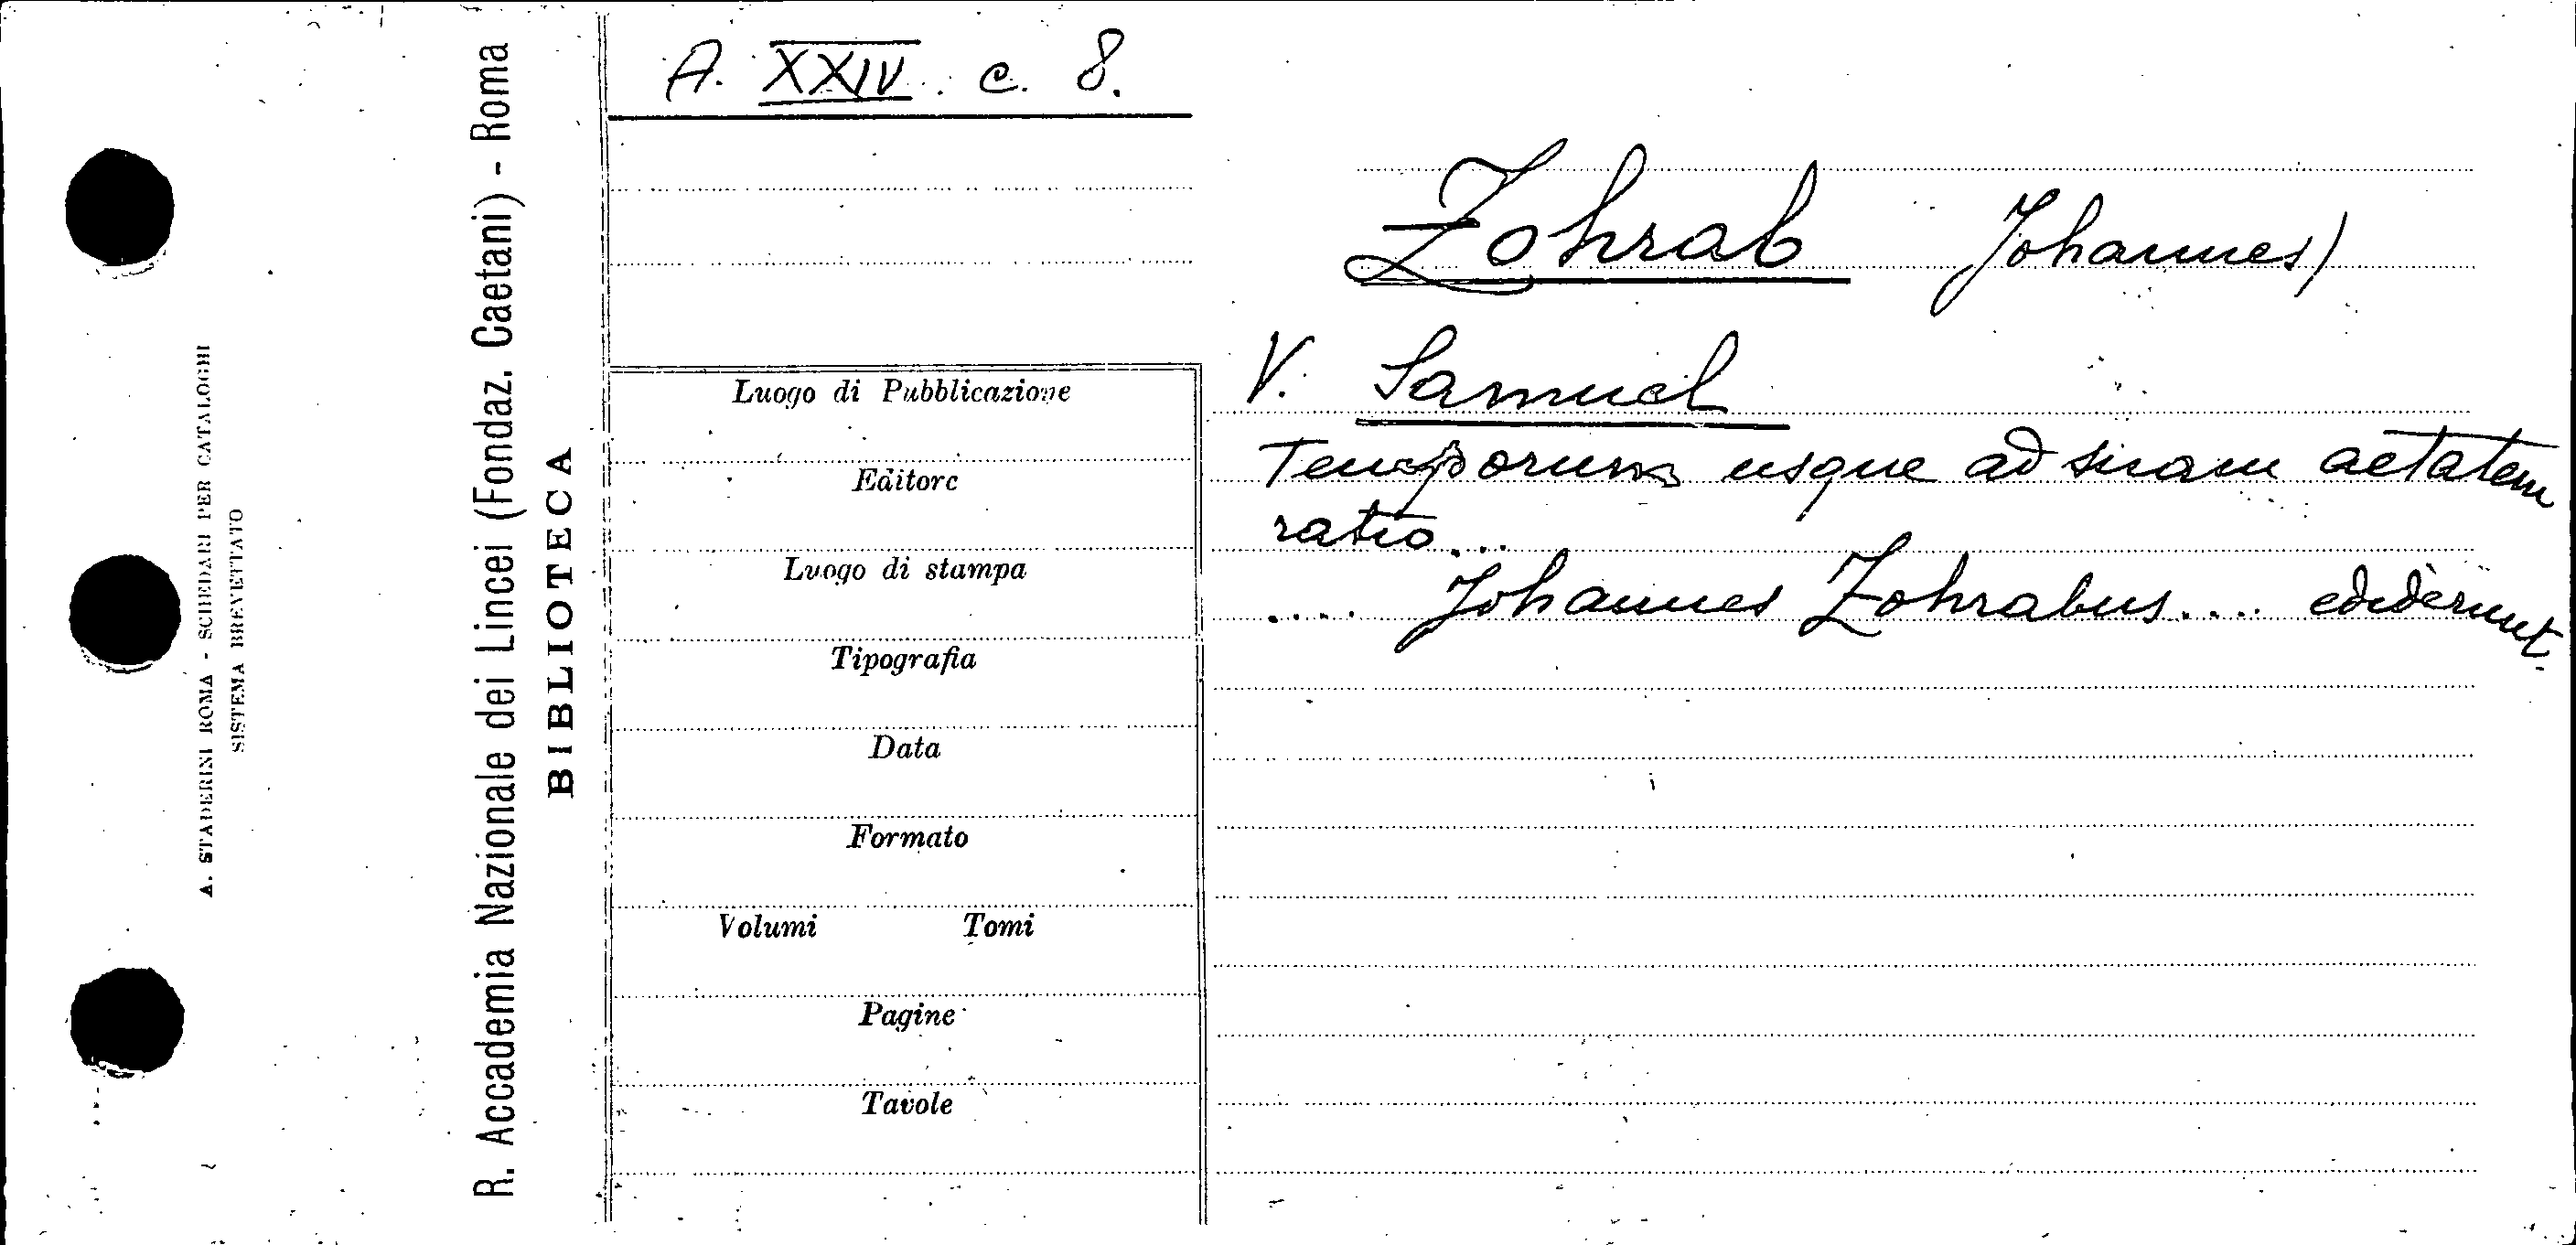 A. STADERINI ROMA - SCHEDARI PER CATALOGHI
SISTEMA BREVETTATO
R. Accademia Nazionale dei Lincei (Fondaz. Caetani) - Roma
BIBLIOTECA
A. XXIV. c. 8.
Luogo di Pubblicazione
Editore
Luogo di stampa
Tipografia
Data
Formato
Volumi Tomi
Pagine
Tavole
Zohrab Johannes)
V. Samuel
Temporum usque ad suam aetatem
ratio...
.... Johannes Zohrabus.... ediderunt